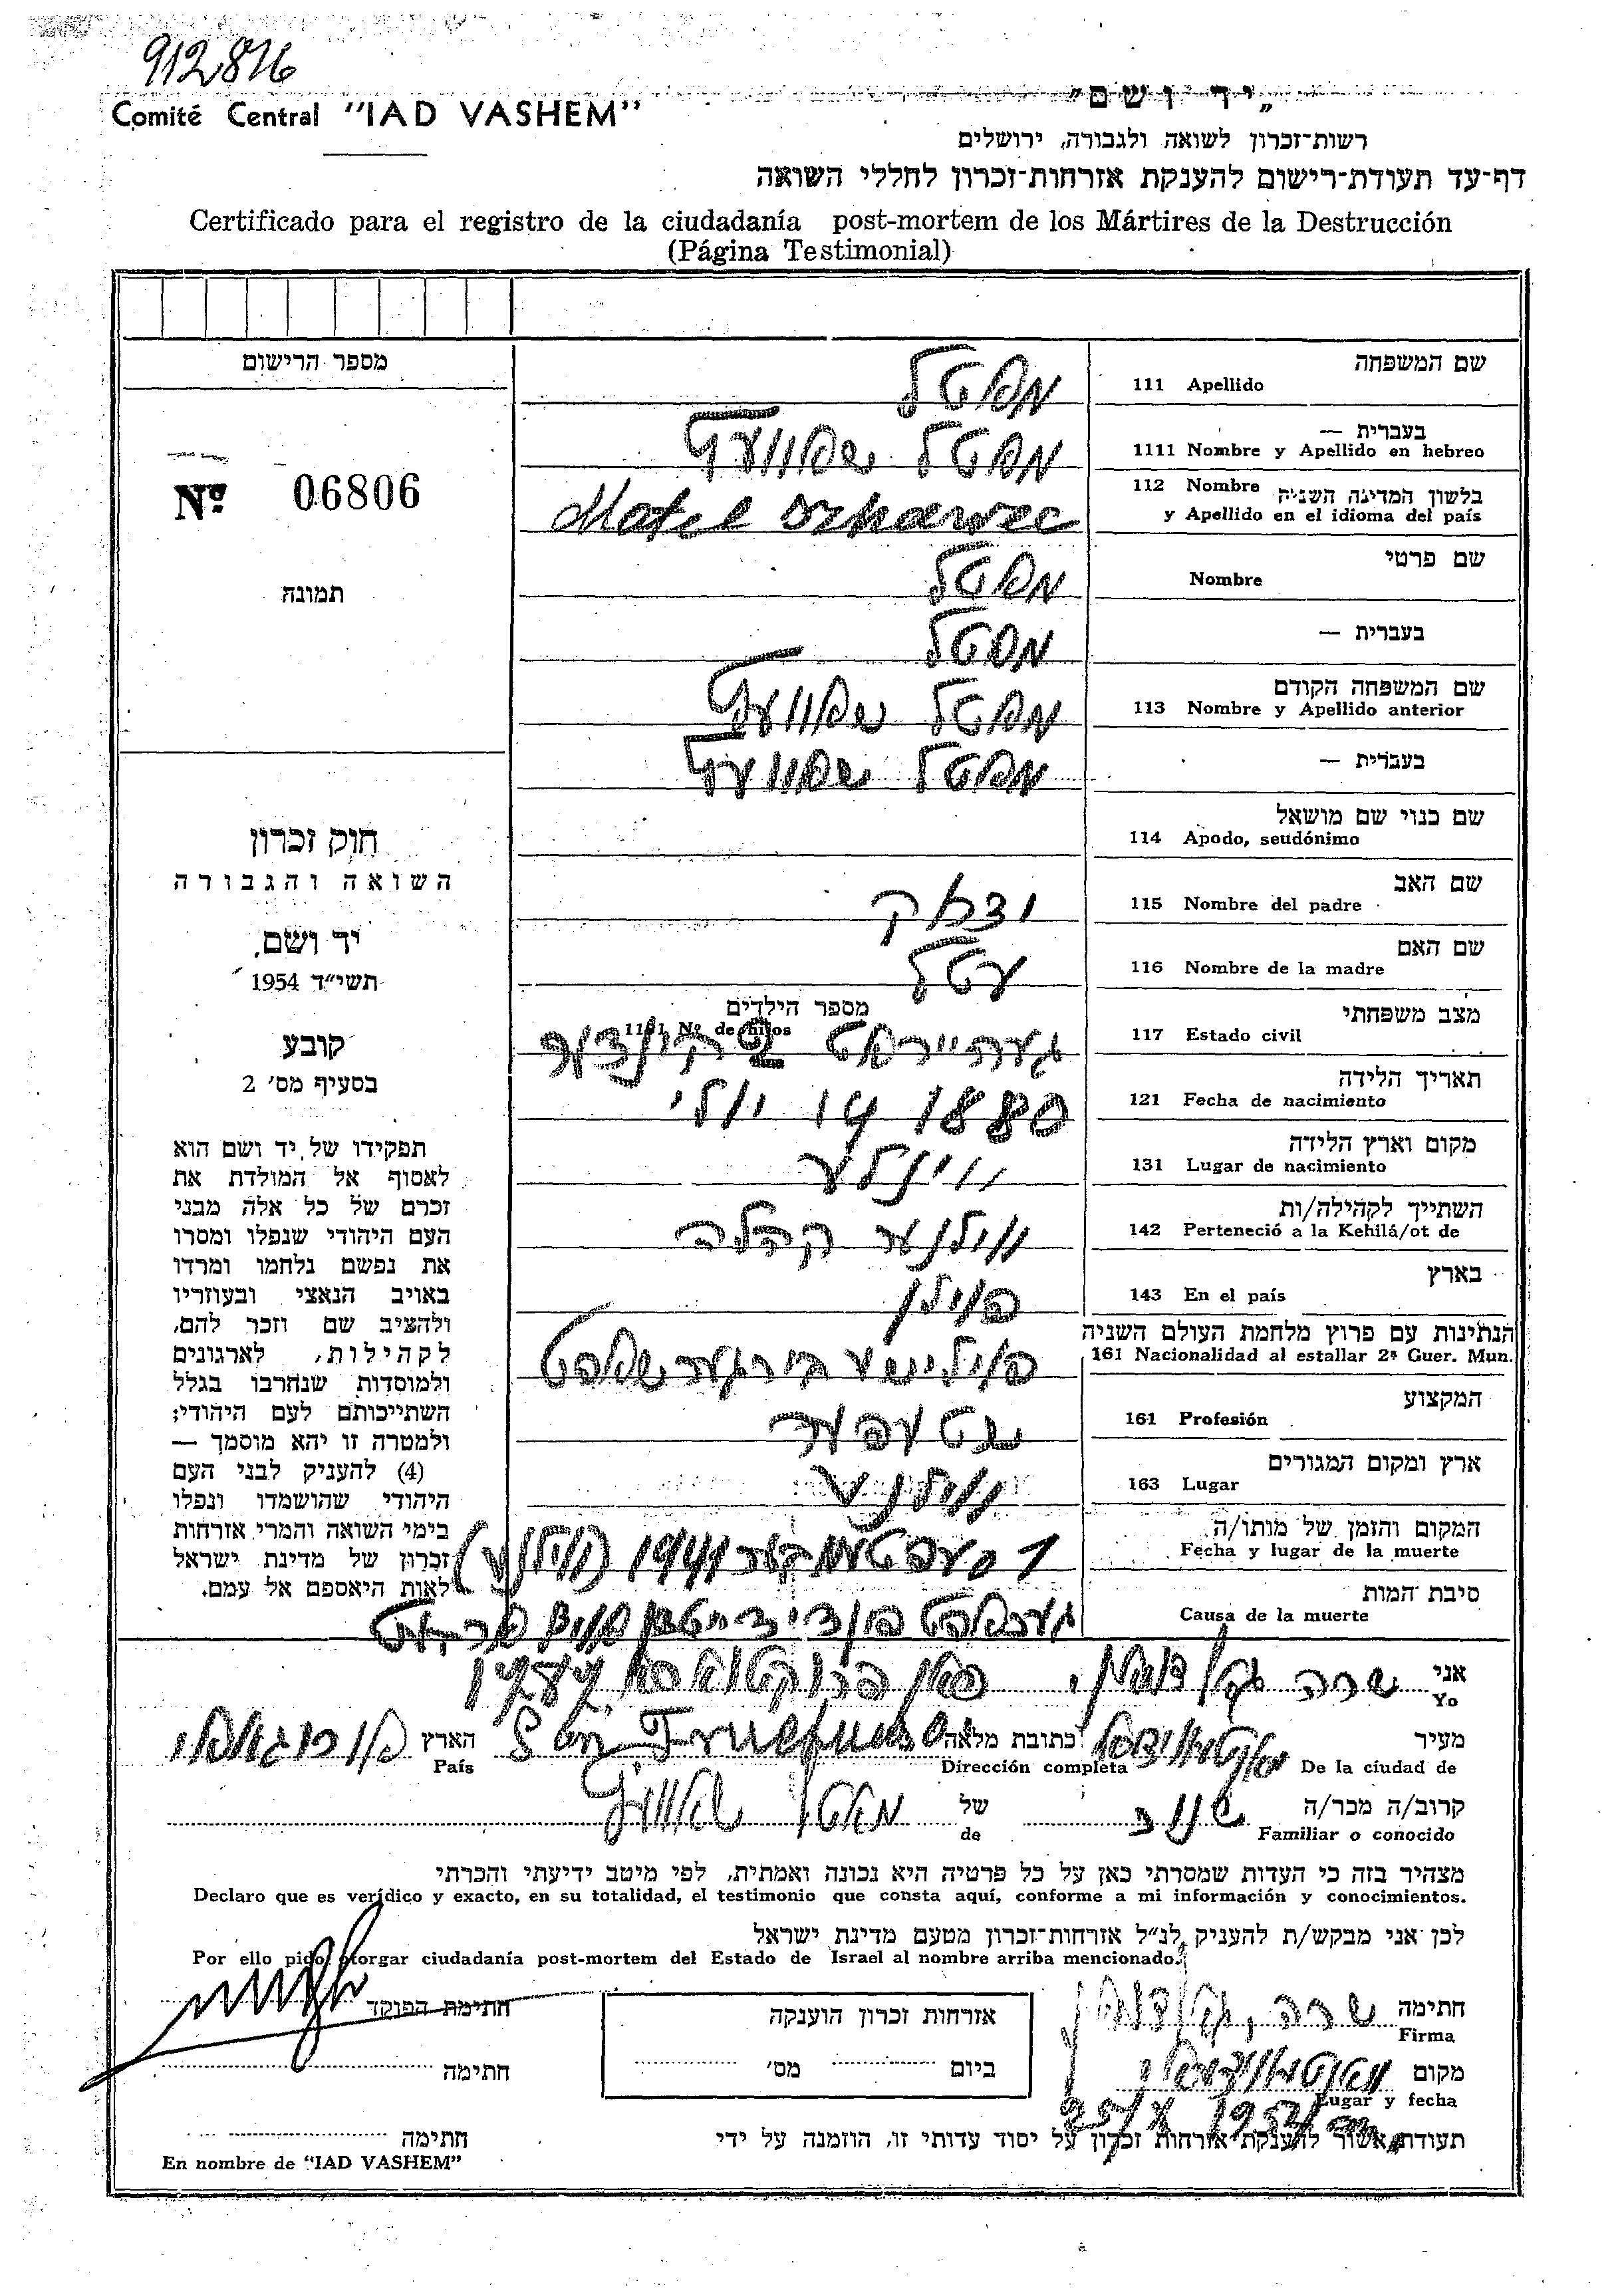 912876
Comité Central "IAD VASHEM"
"יד ושם"
רשות־זכרון לשואה ולגבורה, ירושלים
דף־עד תעודת־רישום להענקת אזרחות־זכרון לחללי השואה
Certificado para el registro de la ciudadanía post-mortem de los Mártires de la Destrucción
(Página Testimonial)
שם המשפחה
111 Apellido
מאטל
בעברית —
1111 Nombre y Apellido en hebreo
מאטל
112 Nombre בלשון המדינה השניה
y Apellido en el idioma del país
שם פרטי
Nombre
מאטל
בעברית —
מאטל
שם המשפחה הקודם
113 Nombre y Apellido anterior
מאטל
בעברית —
מאטל
שם כנוי שם מושאל
114 Apodo, seudónimo
שם האב
115 Nombre del padre
שם האם
116 Nombre de la madre
עטל
מצב משפחתי
117 Estado civil
מספר הילדים
1191 Nº de hijos
תאריך הלידה
121 Fecha de nacimiento
1880 14 יולי
מקום וארץ הלידה
131 Lugar de nacimiento
ווילנע
השתייך לקהילה/ות
142 Perteneció a la Kehilá/ot de
ווילנער קהלה
בארץ
143 En el país
פוילן
הנתינות עם פרוץ מלחמת העולם השניה
161 Nacionalidad al estallar 2ª Guer. Mun.
פוילישע בירגערשאפט
המקצוע
161 Profesión
שטעפער
ארץ ומקום המגורים
163 Lugar
ווילנע
המקום והזמן של מותו/ה
Fecha y lugar de la muerte
1 סעפטעמבער 1941 (ווילנע)
סיבת המות
Causa de la muerte
מספר הרישום
Nº 06806
תמונה
חוק זכרון
השואה והגבורה
יד ושם,
תשי״ד 1954
קובע
בסעיף מס׳ 2
תפקידו של יד ושם הוא
לאסוף אל המולדת את
זכרם של כל אלה מבני
העם היהודי שנפלו ומסרו
את נפשם נלחמו ומרדו
באויב הנאצי ובעוזריו
ולהציב שם וזכר להם,
לקהילות, לארגונים
ולמוסדות שנחרבו בגלל
השתייכותם לעם היהודי;
ולמטרה זו יהא מוסמך —
(4) להעניק לבני העם
היהודי שהושמדו ונפלו
בימי השואה והמרי אזרחות
זכרון של מדינת ישראל
לאות היאספם אל עמם.
אני
Yo
שרה
מעיר
De la ciudad de
כתובת מלאה
Dirección completa
San
הארץ
País
קרוב/ה מכר/ה
Familiar o conocido
של
de
מצהיר בזה כי העדות שמסרתי כאן על כל פרטיה היא נכונה ואמתית, לפי מיטב ידיעתי והכרתי
Declaro que es verídico y exacto, en su totalidad, el testimonio que consta aquí, conforme a mi información y conocimientos.
לכן אני מבקש/ת להעניק לנ״ל אזרחות־זכרון מטעם מדינת ישראל
Por ello pido otorgar ciudadanía post-mortem del Estado de Israel al nombre arriba mencionado.
חתימה
Firma
שרה
אזרחות זכרון הוענקה
ביום מס׳
חתימת הפוקד
חתימה
מקום
Lugar y fecha
תעודת אשור להענקת אזרחות זכרון על יסוד עדותי זו, הוזמנה על ידי
חתימה
En nombre de "IAD VASHEM"